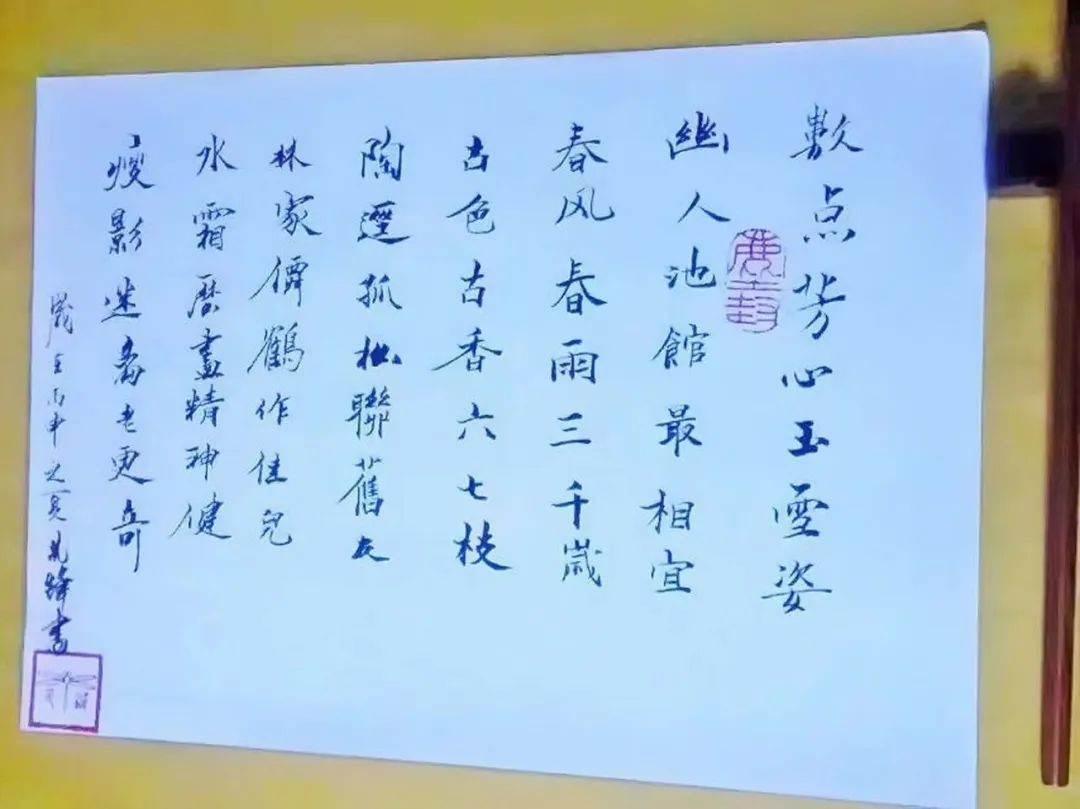 數点芳心玉雪姿
幽人池館最相宜
春风春雨三千歲
古色古香六七枝
陶逕孤松聯舊友
林家鶴作佳兒
氷霜厯盡精神健
瘦影迷离老更奇
歲在丙申之夏鋒書